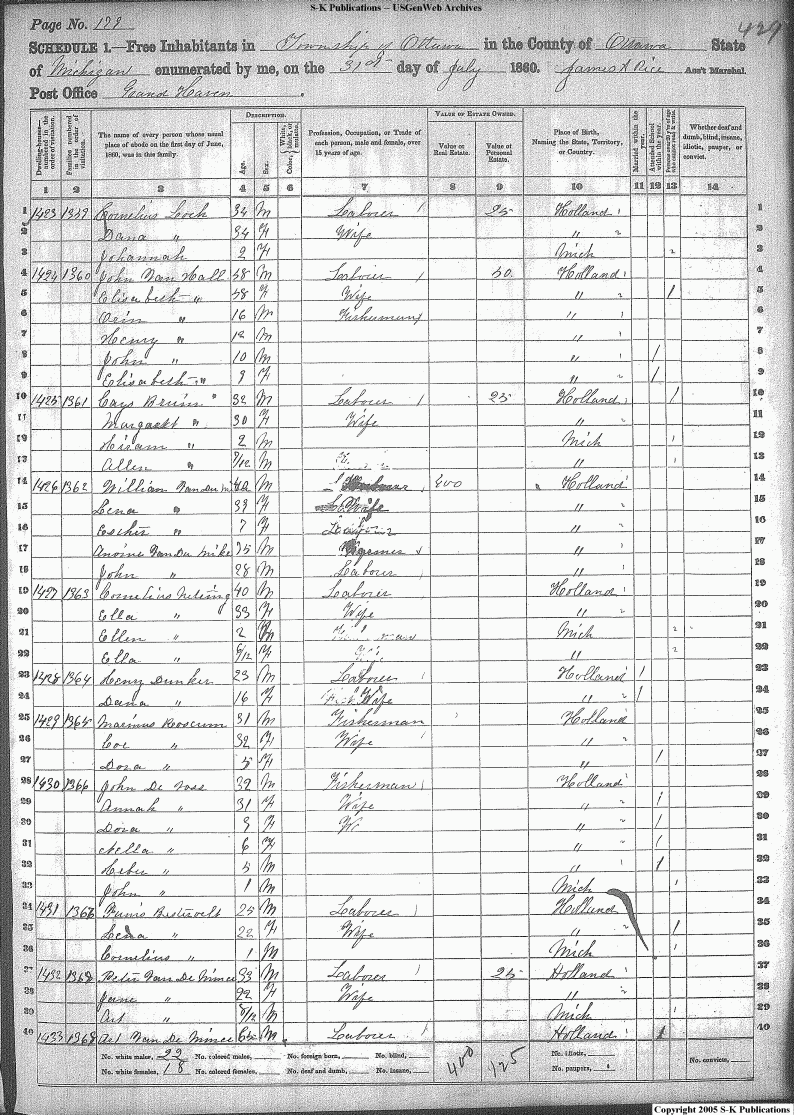 S-K Publications – USGenWeb Archives
Page No. 122
429
SCHEDULE 1.—Free Inhabitants in Township of Ottawa in the County of Ottawa State
of Michigan enumerated by me, on the 31st day of July 1860. James A Rice Ass't Marshal.
Post Office Grand Haven.
Dwelling-houses—numbered in the order of visitation.
Families numbered in the order of visitation.
The name of every person whose usual place of abode on the first day of June, 1860, was in this family.
DESCRIPTION.
Age.
Sex.
Color, White, black, or mulatto.
Profession, Occupation, or Trade of each person, male and female, over 15 years of age.
VALUE OF ESTATE OWNED.
Value of Real Estate.
Value of Personal Estate.
Place of Birth, Naming the State, Territory, or Country.
Married within the year.
Attended School within the year.
Persons over 20 y'rs of age who cannot read & write.
Whether deaf and dumb, blind, insane, idiotic, pauper, or convict.
1 2 3 4 5 6 7 8 9 10 11 12 13 14
1 1423 1359 Cornelius Loch 34 M Laborer 25 Holland 1
2 Dana " 34 F Wife " 2
3 Johannah 2 F Mich 3
4 1424 1360 John Van Hall 48 M Laborer 50 Holland 4
5 Elisabeth " 48 F Wife " / 5
6 " 16 M " 6
7 Henry " 12 M " 7
8 John " 10 M " / 8
9 Elisabeth " 9 F " / 9
10 1425 1361 Cays Bruin " 32 M Laborer 25 Holland / 10
11 Margaret " 30 F Wife " 11
12 Hiram " 2 M Mich 12
13 Allen " 9/12 M " 13
14 1426 1362 William Van Der 42 M 400 Holland 14
15 Lena " 39 F Wife " 15
16 Esther " 7 F " 16
17 Van Der Mike 35 M " 17
18 John " 28 M Laborer " 18
19 1427 1363 Cornelius 40 M Laborer Holland 19
20 Ella " 33 F Wife " 20
21 Ellen " 2 Mich 21
22 Ella " 6/12 F " 22
23 1428 1364 Henry Dunker 23 M Laborer Holland / 23
24 Dana " 16 F Wife " / 24
25 1429 1365 Marinus Rooscrum 31 M Fisherman Holland 25
26 Coe " 32 F Wife " 26
27 Dora " 5 F " / 27
28 1430 1366 John De Voss 32 M Fisherman Holland 28
29 Annah " 31 F Wife " / 29
30 Dora " 9 F " / 30
31 Nella " 6 F " / 31
32 Heber " 5 M " / 32
33 John " 1 M Mich 33
34 1431 1366 25 M Laborer Holland 34
35 Lena " 22 F Wife " / 35
36 Cornelius " 1 M Mich 36
37 1432 1368 Peter Van De Mince 33 M Laborer 25 Holland 37
38 Jane " 22 F Wife " 38
39 Art " 8/12 M Mich 39
40 1433 1368 Art Van De Mince M Laborer Holland 40
No. white males, 22 No. colored males, No. foreign born, No. blind, 400 125 No. idiotic,
No. white females, 18 No. colored females, No. deaf and dumb, No. insane, No. paupers, No. convicts,
Copyright 2005 S-K Publications